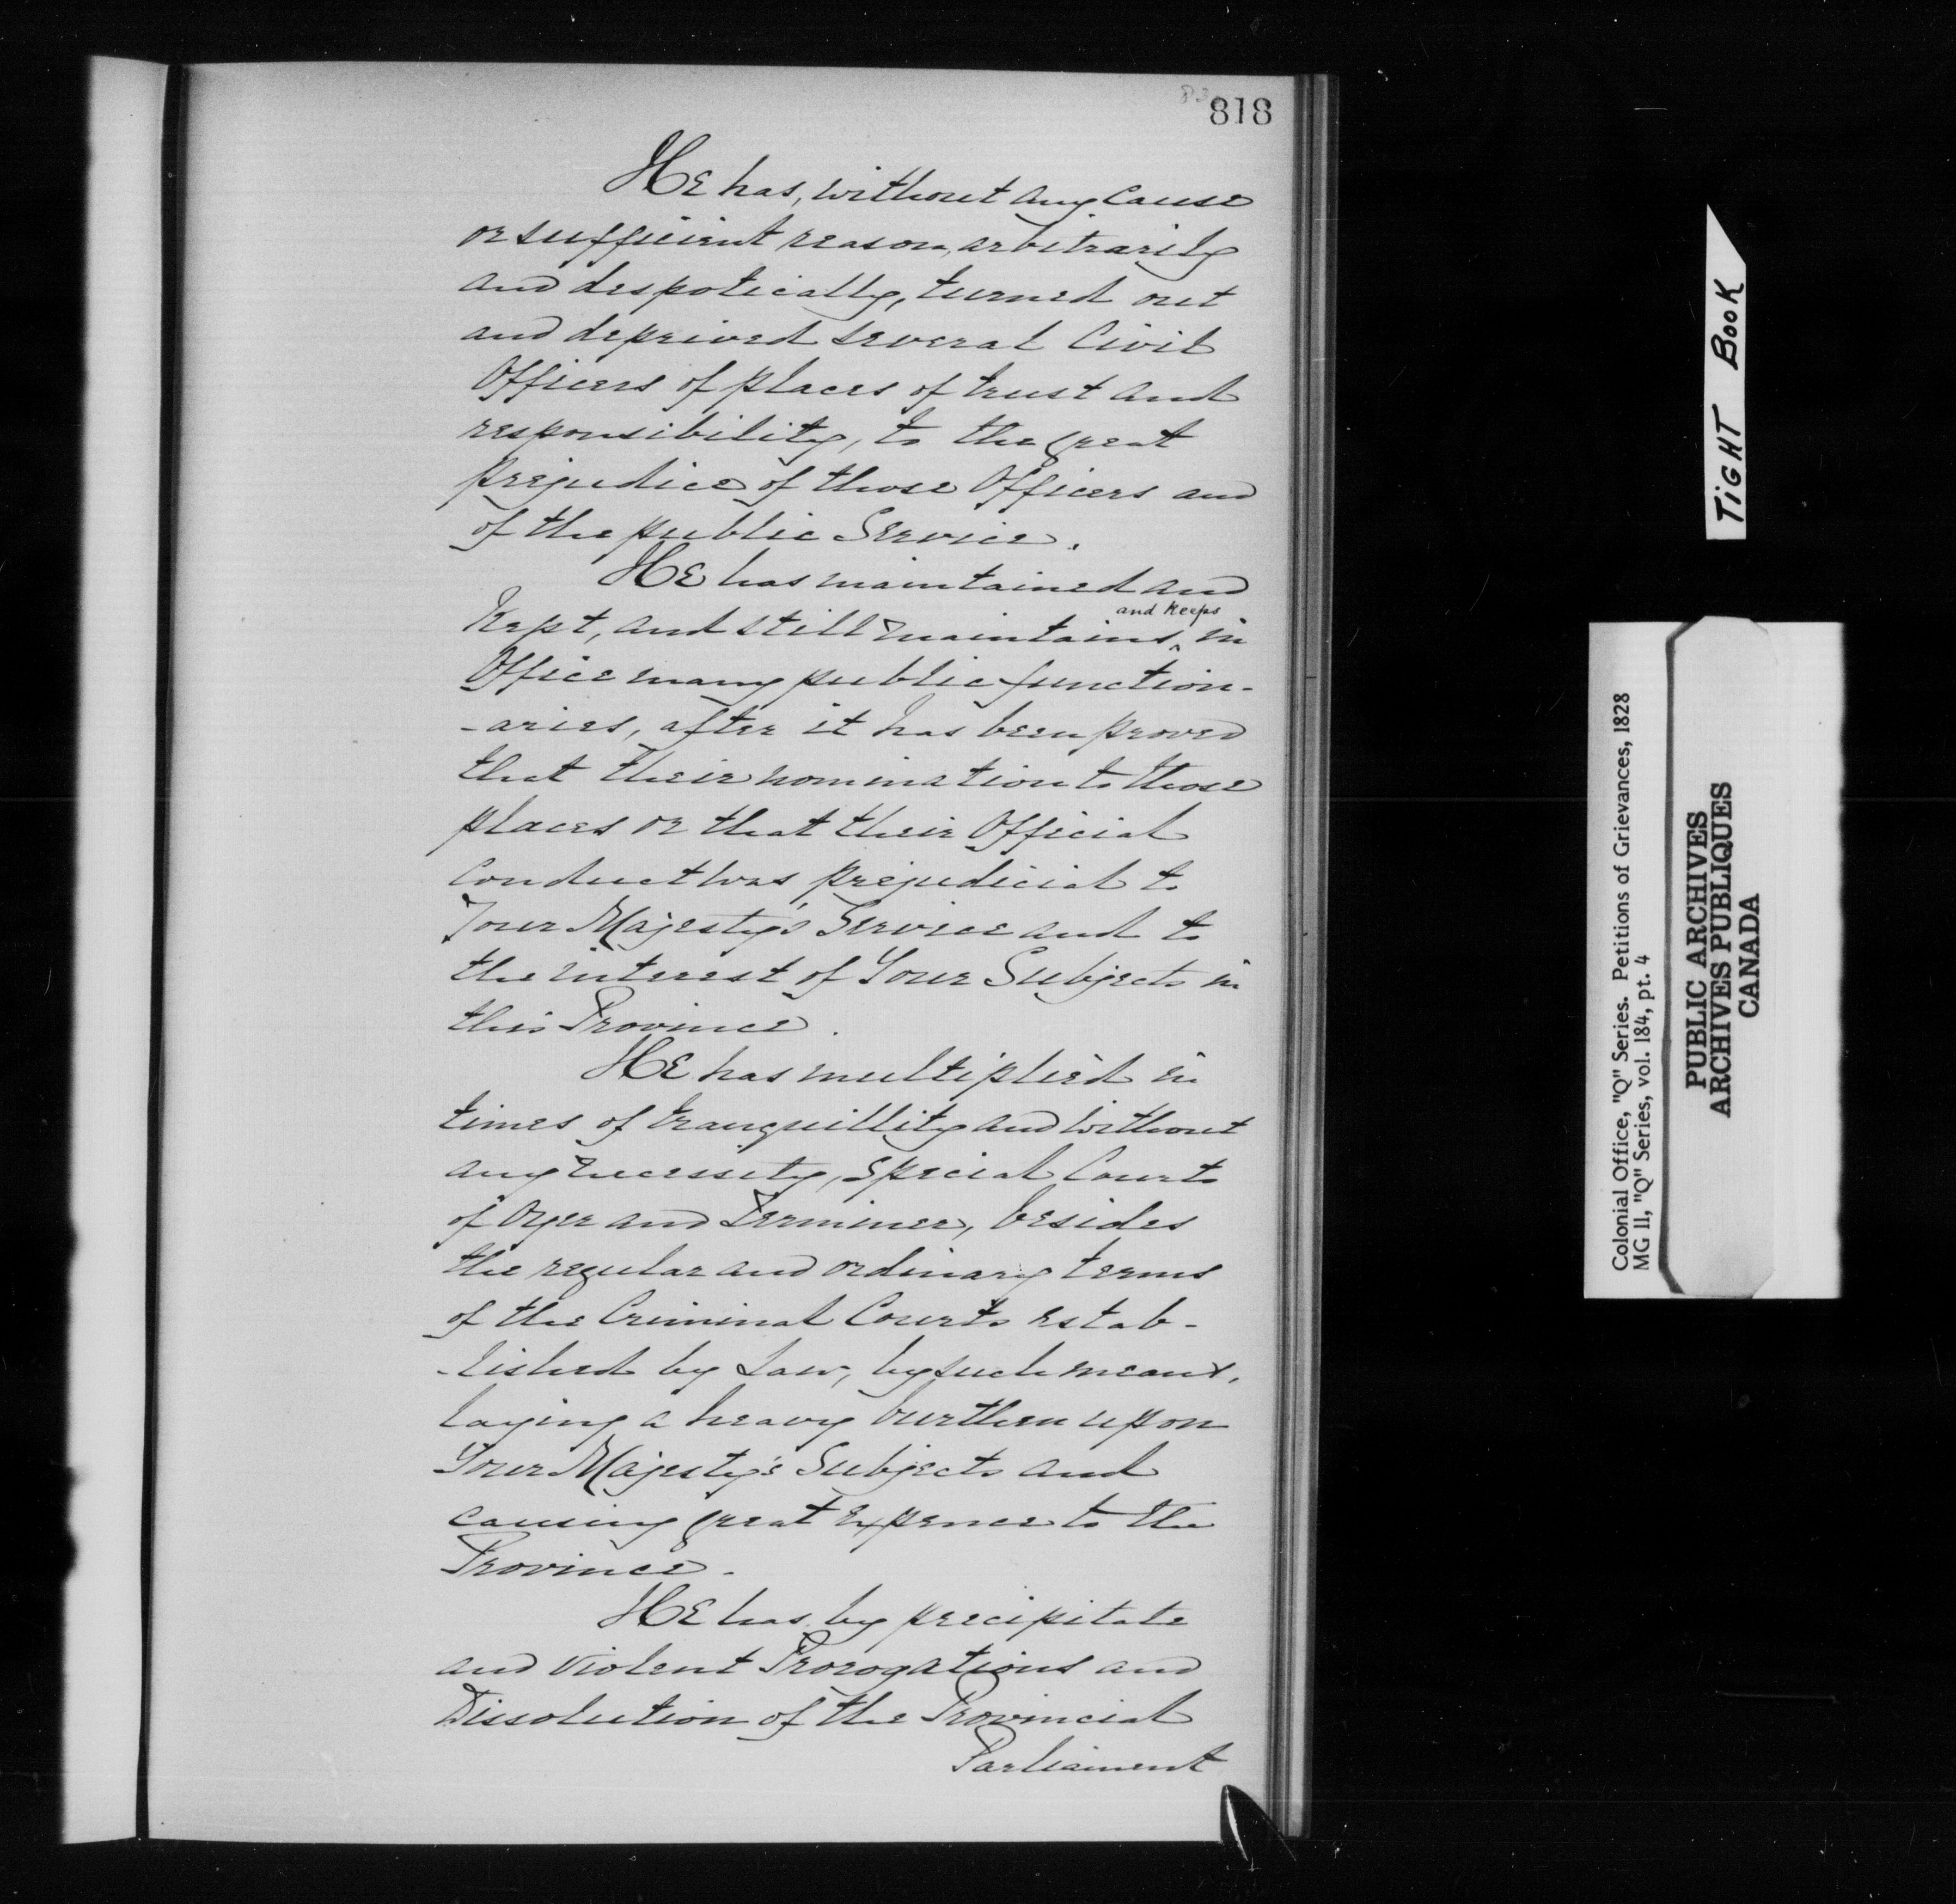 818
He has, without any cause
or sufficient reason, arbitrarily
and despotically, turned out
and deprived several Civil
Officers of places of trust and
responsibility, to the great
prejudice of those Officers and
of the public Service.
He has maintained and
and keeps
Kept, and still maintains ^ in
Office many public function-
-aries, after it has been proved
that their nomination to those
places or that their Official
conduct was prejudicial to
Your Majesty's Service and to
the interest of Your Subjects in
this Province.
He has multiplied in
times of tranquillity and without
any necessity, special Courts
of Oyer and Terminer, besides
the regular and ordinary terms
of the Criminal Courts estab-
-lished by Law, by such means,
laying a heavy burthen upon
Your Majesty's Subjects and
causing great expence to the
Province.
He has by precipitate
and violent Prorogations and
Dissolution of the Provincial
Parliament
TIGHT BOOK
Colonial Office, "Q" Series. Petitions of Grievances, 1828
MG 11, "Q" Series, vol. 184, pt. 4
PUBLIC ARCHIVES
ARCHIVES PUBLIQUES
CANADA